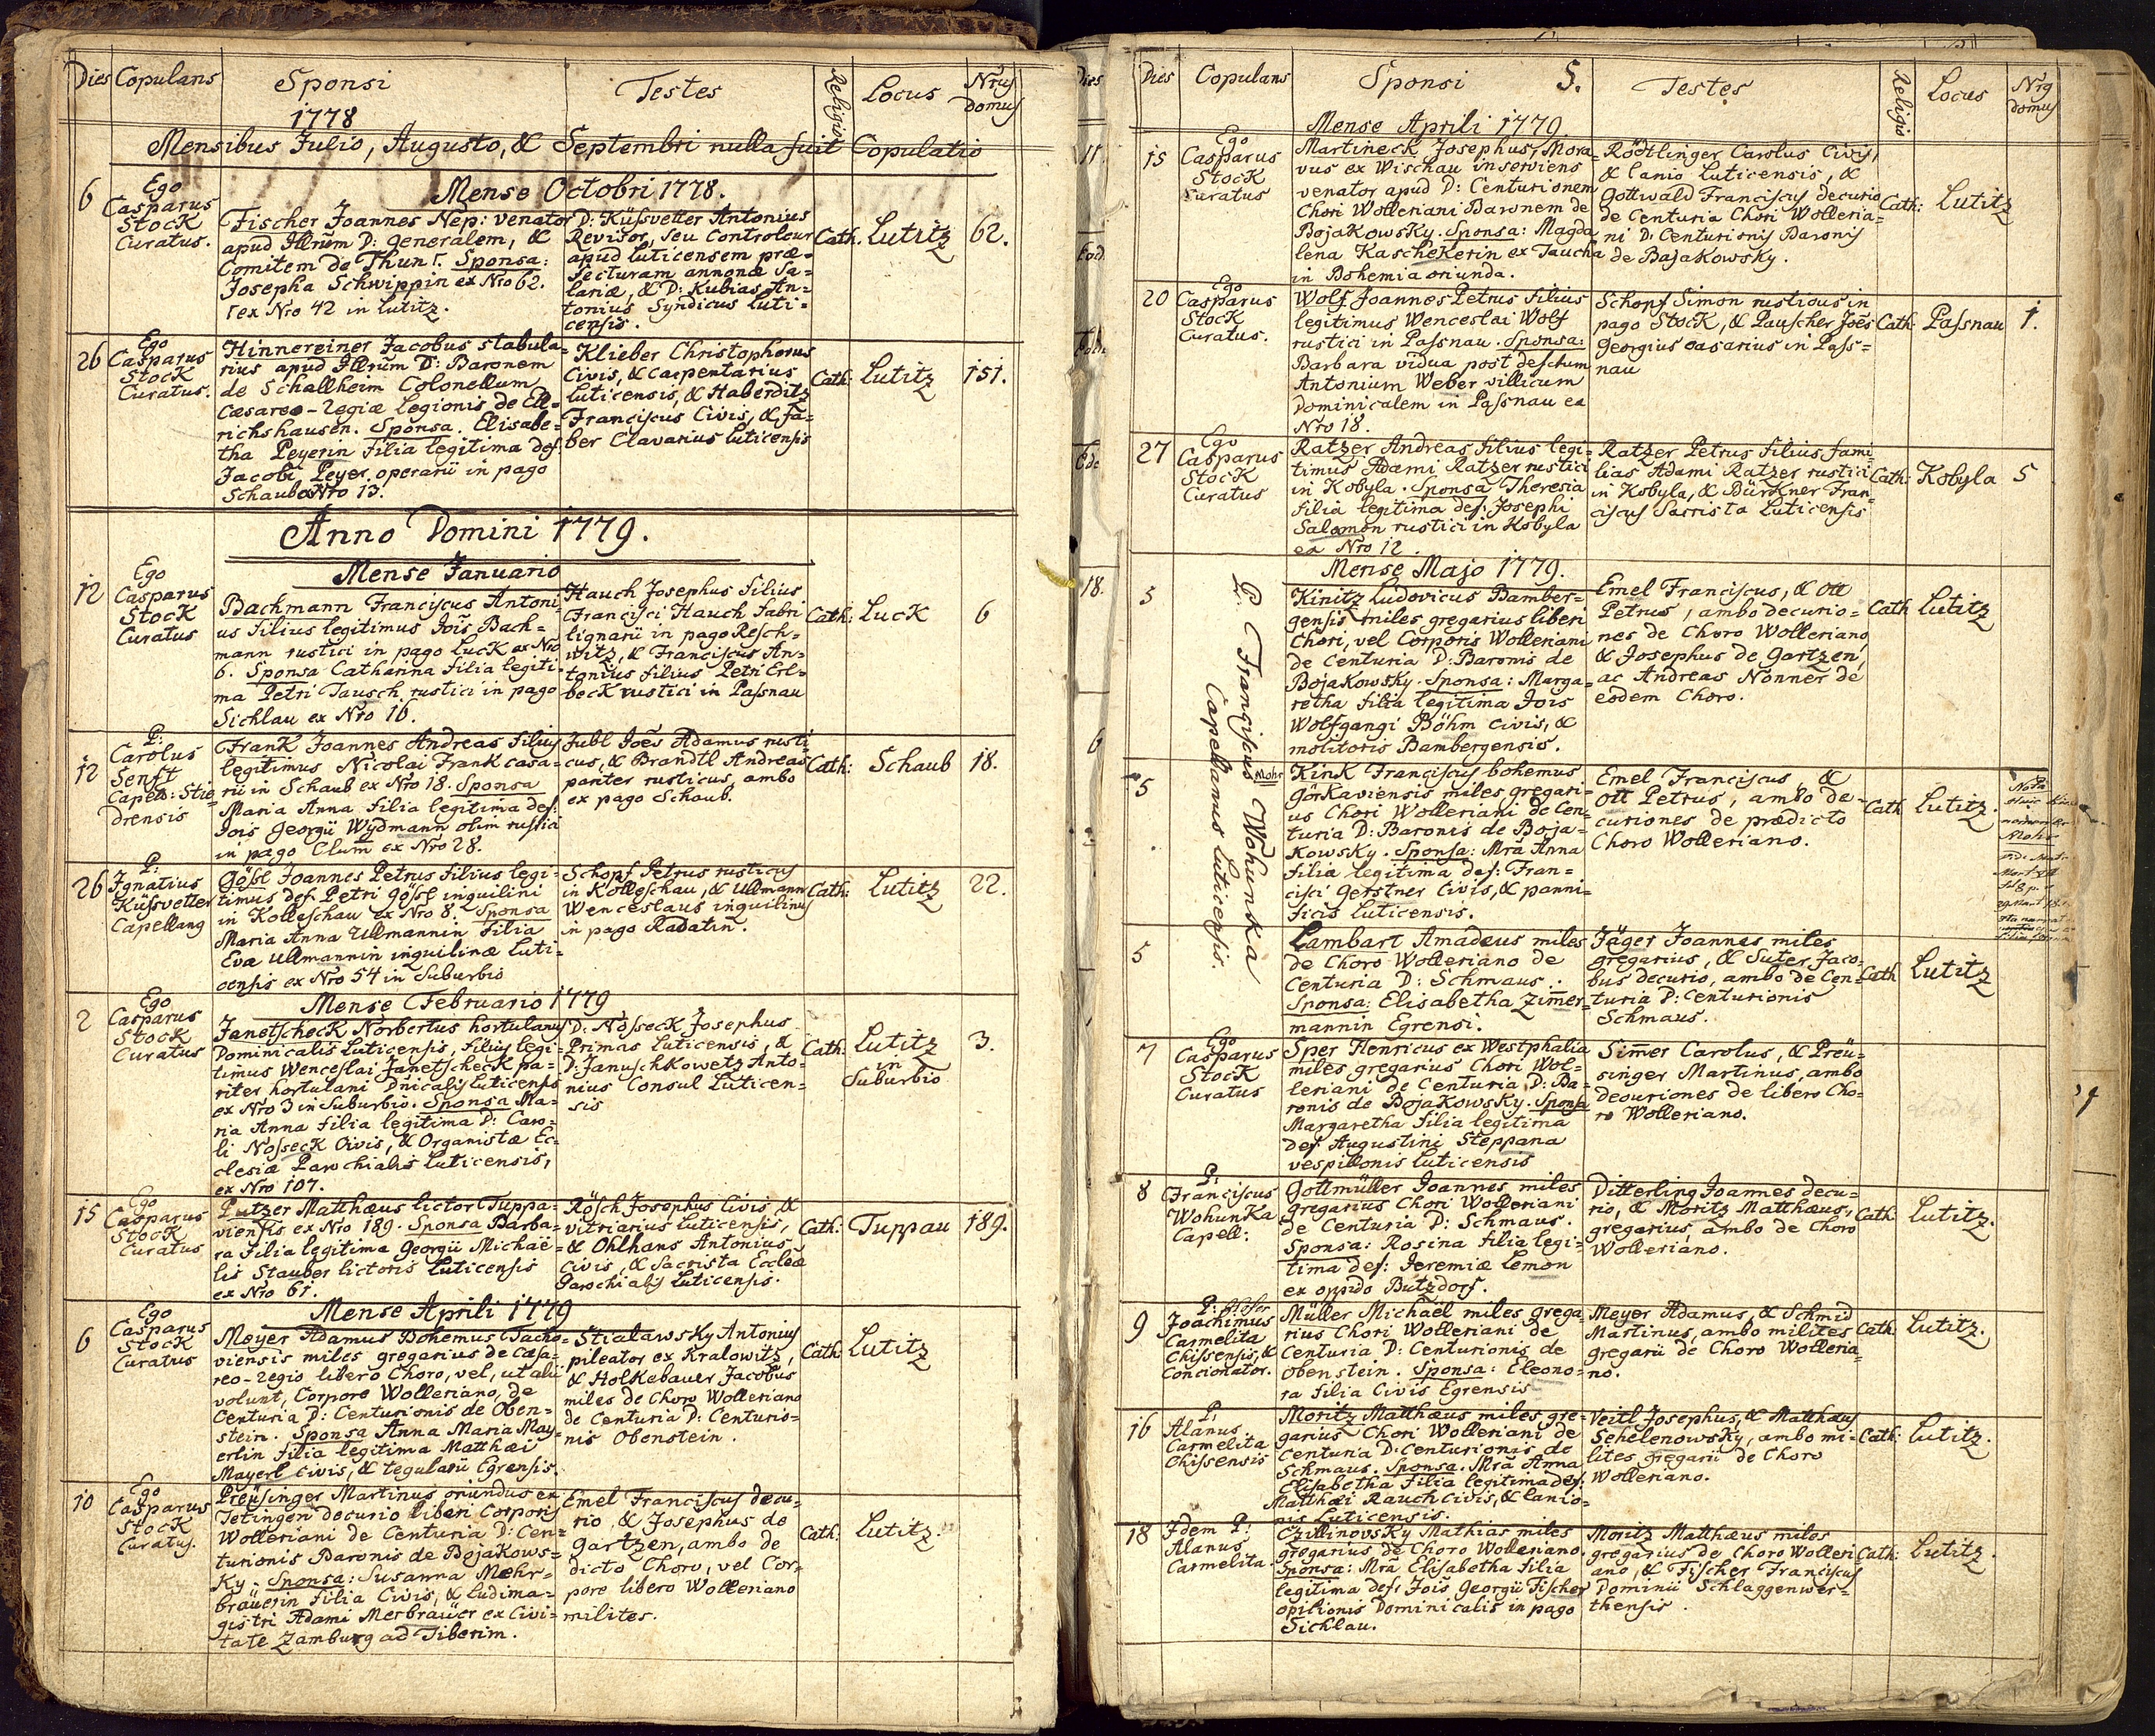 Dies Copulans Sponsi Testes Religio Locus Nrus domus
1778
Mensibus Julio, Augusto, & Septembri nulla fuit Copulatio
Mense Octobri 1778.
6
Ego
Casparus
Stock
Curatus.
Fischer Joannes Nep: venator
apud Illrum D: generalem, &
Comitem de Thun Γ. Sponsa:
Josepha Schwippin ex Nro 62.
Γ ex Nro 42 in Lutitz.
D: Küssvetter Antonius
Revisor, seu Controleur
apud Luticensem præ-
fecturam annonæ sa-
lariæ, & D: Kubias An-
tonius Syndicus Luti-
censis.
Cath. Lutitz 62.
26
Ego
Casparus
Stock
Curatus.
Hinnereiner Jacobus stabula-
rius apud Illrum D: Baronem
de Schallheim Colonellum
Cæsareo-Regiæ legionis de Ell-
richshausen. Sponsa. Elisabe-
tha Peyerin filia legitima def.
Jacobi Peyer operarii in pago
Schaub Nro 13.
Klieber Christophorus
Civis, & Carpentarius
Luticensis, & Haberditz
Franciscus Civis, & fa-
ber Clavarius Luticensis
Cath: Lutitz 151.
Anno Domini 1779.
Mense Januario
12
Ego
Casparus
Stock
Curatus
Bachmann Franciscus Antoni-
us filius legitimus Jois Bach-
mann rustici in pago Luck ex Nro
6. Sponsa Catharina filia legiti-
ma Petri Tausch rustici in pago
Sichlau ex Nro 16.
Hauch Josephus filius
Francisci Hauch fabri
lignarii in pago Resch-
witz, & Franciscus An-
tonius filius Petri Erl-
beck rustici in Passnau
Cath: Luck 6
12
P:
Carolus
Senft
Capell: Stie-
drensis
Frank Joannes Andreas filius
legitimus Nicolai Frank casa-
rii in Schaub ex Nro 18. Sponsa
Maria Anna filia legitima def:
Jois Georgii Wydmann olim rustici
in pago Clum ex Nro 28.
Jubl Joes Adamus rusti-
cus, & Brandtl Andreas
pariter rusticus, ambo
ex pago Schaub.
Cath: Schaub 18.
26
P:
Ignatius
Küssvetter
Capellanq
Gössl Joannes Petrus filius legi-
timus def. Petri Gössl inquilini
in Kolleschau ex Nro 8. Sponsa
Maria Anna Ullmannin filia
Evæ Ullmannin inquilinæ Luti-
censis ex Nro 54 in Suburbio
Schopf Petrus rusticus
in Kolleschau, & Ullmann
Wenceslaus inquilinus
in pago Radatin.
Cath: Lutitz 22.
Mense Februario 1779
2
Ego
Casparus
Stock
Curatus
Janetscheck Norbertus hortulanus
Dominicalis Luticensis, filius legi-
timus Wenceslai Janetscheck pa-
riter hortulani Dnicalis Luticensis
ex Nro 3 in Suburbio. Sponsa Ma-
ria Anna filia legitima D: Caro-
li Nosseck Civis, & Organistæ Ec-
clesiæ Parochialis Luticensis,
ex Nro 107.
D: Nosseck Josephus
Primas Luticensis, &
D: Januschkowetz Anto-
nius Consul Luticen-
sis
Cath: Lutitz 3.
in
Suburbio
15
Ego
Casparus
Stock
Curatus
Putzer Matthæus lictor Tuppa-
viensis ex Nro 189. Sponsa Barba-
ra filia legitima Georgii Michaë-
lis Stauber lictoris Luticensis
ex Nro 61.
Rösch Josephus Civis, &
vitriarius Luticensis,
& Ohlhans Antonius
Civis, & Sacrista Eccleæ
Parochialis Luticensis.
Cath: Tuppau 189.
Mense Aprili 1779
6
Ego
Casparus
Stock
Curatus
Meyer Adamus Bohemus Tacho-
viensis miles gregarius de Cæsa-
reo-Regio libero Choro, vel, ut alii
volunt, Corpore Wolleriano, de
Centuria D: Centurionis de Oben-
stein. Sponsa Anna Maria May-
erlin filia legitima Matthæi
Mayerl Civis, & tegularii Egrensis.
Stialawsky Antonius
pileator ex Kralowitz,
& Holkebauer Jacobus
miles de Choro Wolleriano
de Centuria D: Centurio-
nis Obenstein.
Cath: Lutitz
10
Ego
Casparus
Stock
Curatus.
Preüsinger Martinus oriundus ex
Tetingen decurio liberi Corporis
Wolleriani de Centuria D: Cen-
turionis Baronis de Bojakows-
ky. Sponsa: Susanna Mæhr-
bräuerin filia Civis, & ludima-
gistri Adami Merbraüer ex Civi-
tate Zamburg ad Tiberim.
Emel Franciscus decu-
rio, & Josephus de
Gartzen, ambo de
dicto Choro, vel Cor-
pore libero Wolleriano
milites.
Cath: Lutitz.
Dies Copulans Sponsi 5. Testes Religio Locus Nrq domus
Mense Aprili 1779.
15
Ego
Casparus
Stock
Curatus
Martineck Josephus, Mora-
vus ex Wischau inserviens
venator apud D: Centurionem
Chori Wolleriani Baronem de
Bojakowsky. Sponsa: Magda-
lena Kaschekerin ex Taucha
in Bohemia oriunda.
Rödtlinger Carolus Civis,
& lanio Luticensis, &
Gottwald Franciscus decurio
de Centuria Chori Wolleria-
ni D: Centurionis Baronis
de Bajakowsky.
Cath: Lutitz
20
Ego
Casparus
Stock
Curatus.
Wolf Joannes Petrus filius
legitimus Wenceslai Wolf
rustici in Passnau. Sponsa:
Barbara vidua post defctum
Antonium Weber villicum
Dominicalem in Passnau ex
Nro 18.
Schopf Simon rusticus in
pago Stock, & Pauscher Joes
Georgius casarius in Pass-
nau
Cath: Passnau 1.
27
Ego
Casparus
Stock
Curatus
Ratzer Andreas filius legi-
timus Adami Ratzer rustici
in Kobyla. Sponsa Theresia
filia legitima def: Josephi
Salomon rustici in Kobyla
ex Nro 12.
Ratzer Petrus filius fami-
lias Adami Ratzer rustici
in Kobyla, & Bürkner Fran-
ciscus Sacrista Luticensis
Cath: Kobyla 5
Mense Majo 1779.
P: Franciscus Wohunka
Capellanus Luticensis.
5
Kinitz Ludovicus Bamber-
gensis miles gregarius liberi
Chori, vel Corporis Wolleriani
de Centuria D: Baronis de
Bojakowsky. Sponsa: Marga-
retha filia legitima Jois
Wolfgangi Böhm Civis, &
molitoris Bambergensis.
Emel Franciscus, & Ott
Petrus, ambo decurio-
nes de Choro Wolleriano,
& Josephus de Gartzen,
ac Andreas Nonner de
eodem Choro.
Cath Lutitz
5
Mohr
Kink Franciscus bohemus
Görkaviensis miles gregari-
us Chori Wolleriani de Cen-
turia D: Baronis de Boja-
kowsky. Sponsa: Mra Anna
filia legitima def: Fran-
cisci Gerstner Civis, & panni-
ficis Luticensis.
Emel Franciscus, &
Ott Petrus, ambo de-
curiones de prædicto
Choro Wolleriano.
Cath Lutitz.
Nota
Mohr
5
Lambart Amadæus miles
de Choro Wolleriano de
Centuria D: Schmaus.
Sponsa: Elisabetha Zimer-
mannin Egrensi.
Jäger Joannes miles
gregarius, & Suter Jaco-
bus decurio, ambo de Cen-
turia D: Centurionis
Schmaus.
Cath Lutitz
7
Ego
Casparus
Stock
Curatus
Sper Henricus ex Westphalia
miles gregarius Chori Wol-
leriani de Centuria D: Ba-
ronis de Bojakowsky. Sponsa
Margaretha filia legitima
def. Augustini Steppana
vespillonis Luticensis
Simer Carolus, & Preü-
singer Martinus, ambo
decuriones de libero Cho-
ro Wolleriano.
8
P:
Franciscus
Wohunka
Capell:
Gottmüller Joannes miles
gregarius Chori Wolleriani
de Centuria D: Schmaus.
Sponsa: Rosina filia legi-
tima def: Jeremiæ Lemon
ex oppido Butzdorf.
Ditterling Joannes decu-
rio, & Moritz Matthæus,
gregarius, ambo de Choro
Wolleriano.
Cath Lutitz.
9
P:
Joachimus
Carmelita
Chissensis, &
Concionator.
Müller Michaël miles grega-
rius Chori Wolleriani de
Centuria D: Centurionis de
Obenstein. Sponsa: Eleono-
ra filia Civis Egrensis
Meyer Adamus, & Schmid
Martinus, ambo milites
gregarii de Choro Wolleria-
no.
Cath Lutitz.
16
P:
Alanus
Carmelita
Chissensis
Moritz Matthæus miles gre-
garius Chori Wolleriani de
Centuria D: Centurionis de
Schmaus. Sponsa. Mra Anna
Elisabetha filia legitima def.
Matthæi Rauch Civis, & lanio-
nis Luticensis.
Veitl Josephus, & Matthæus
Sehelenowsky, ambo mi-
lites gregarii de Choro
Wolleriano.
Cath: Lutitz.
18
Idem P:
Alanus
Carmelita.
Czillinovsky Mathias miles
gregarius de Choro Wolleriano.
Sponsa: Mra Elisabetha filia
legitima def: Jois Georgii Fischer
opilionis Dominicalis in pago
Sichlau.
Moritz Matthæus miles
gregarius de Choro Wolleri-
ano, & Fischer Franciscus
Dominii Schlaggenwer-
thensis.
Cath: Lutitz.